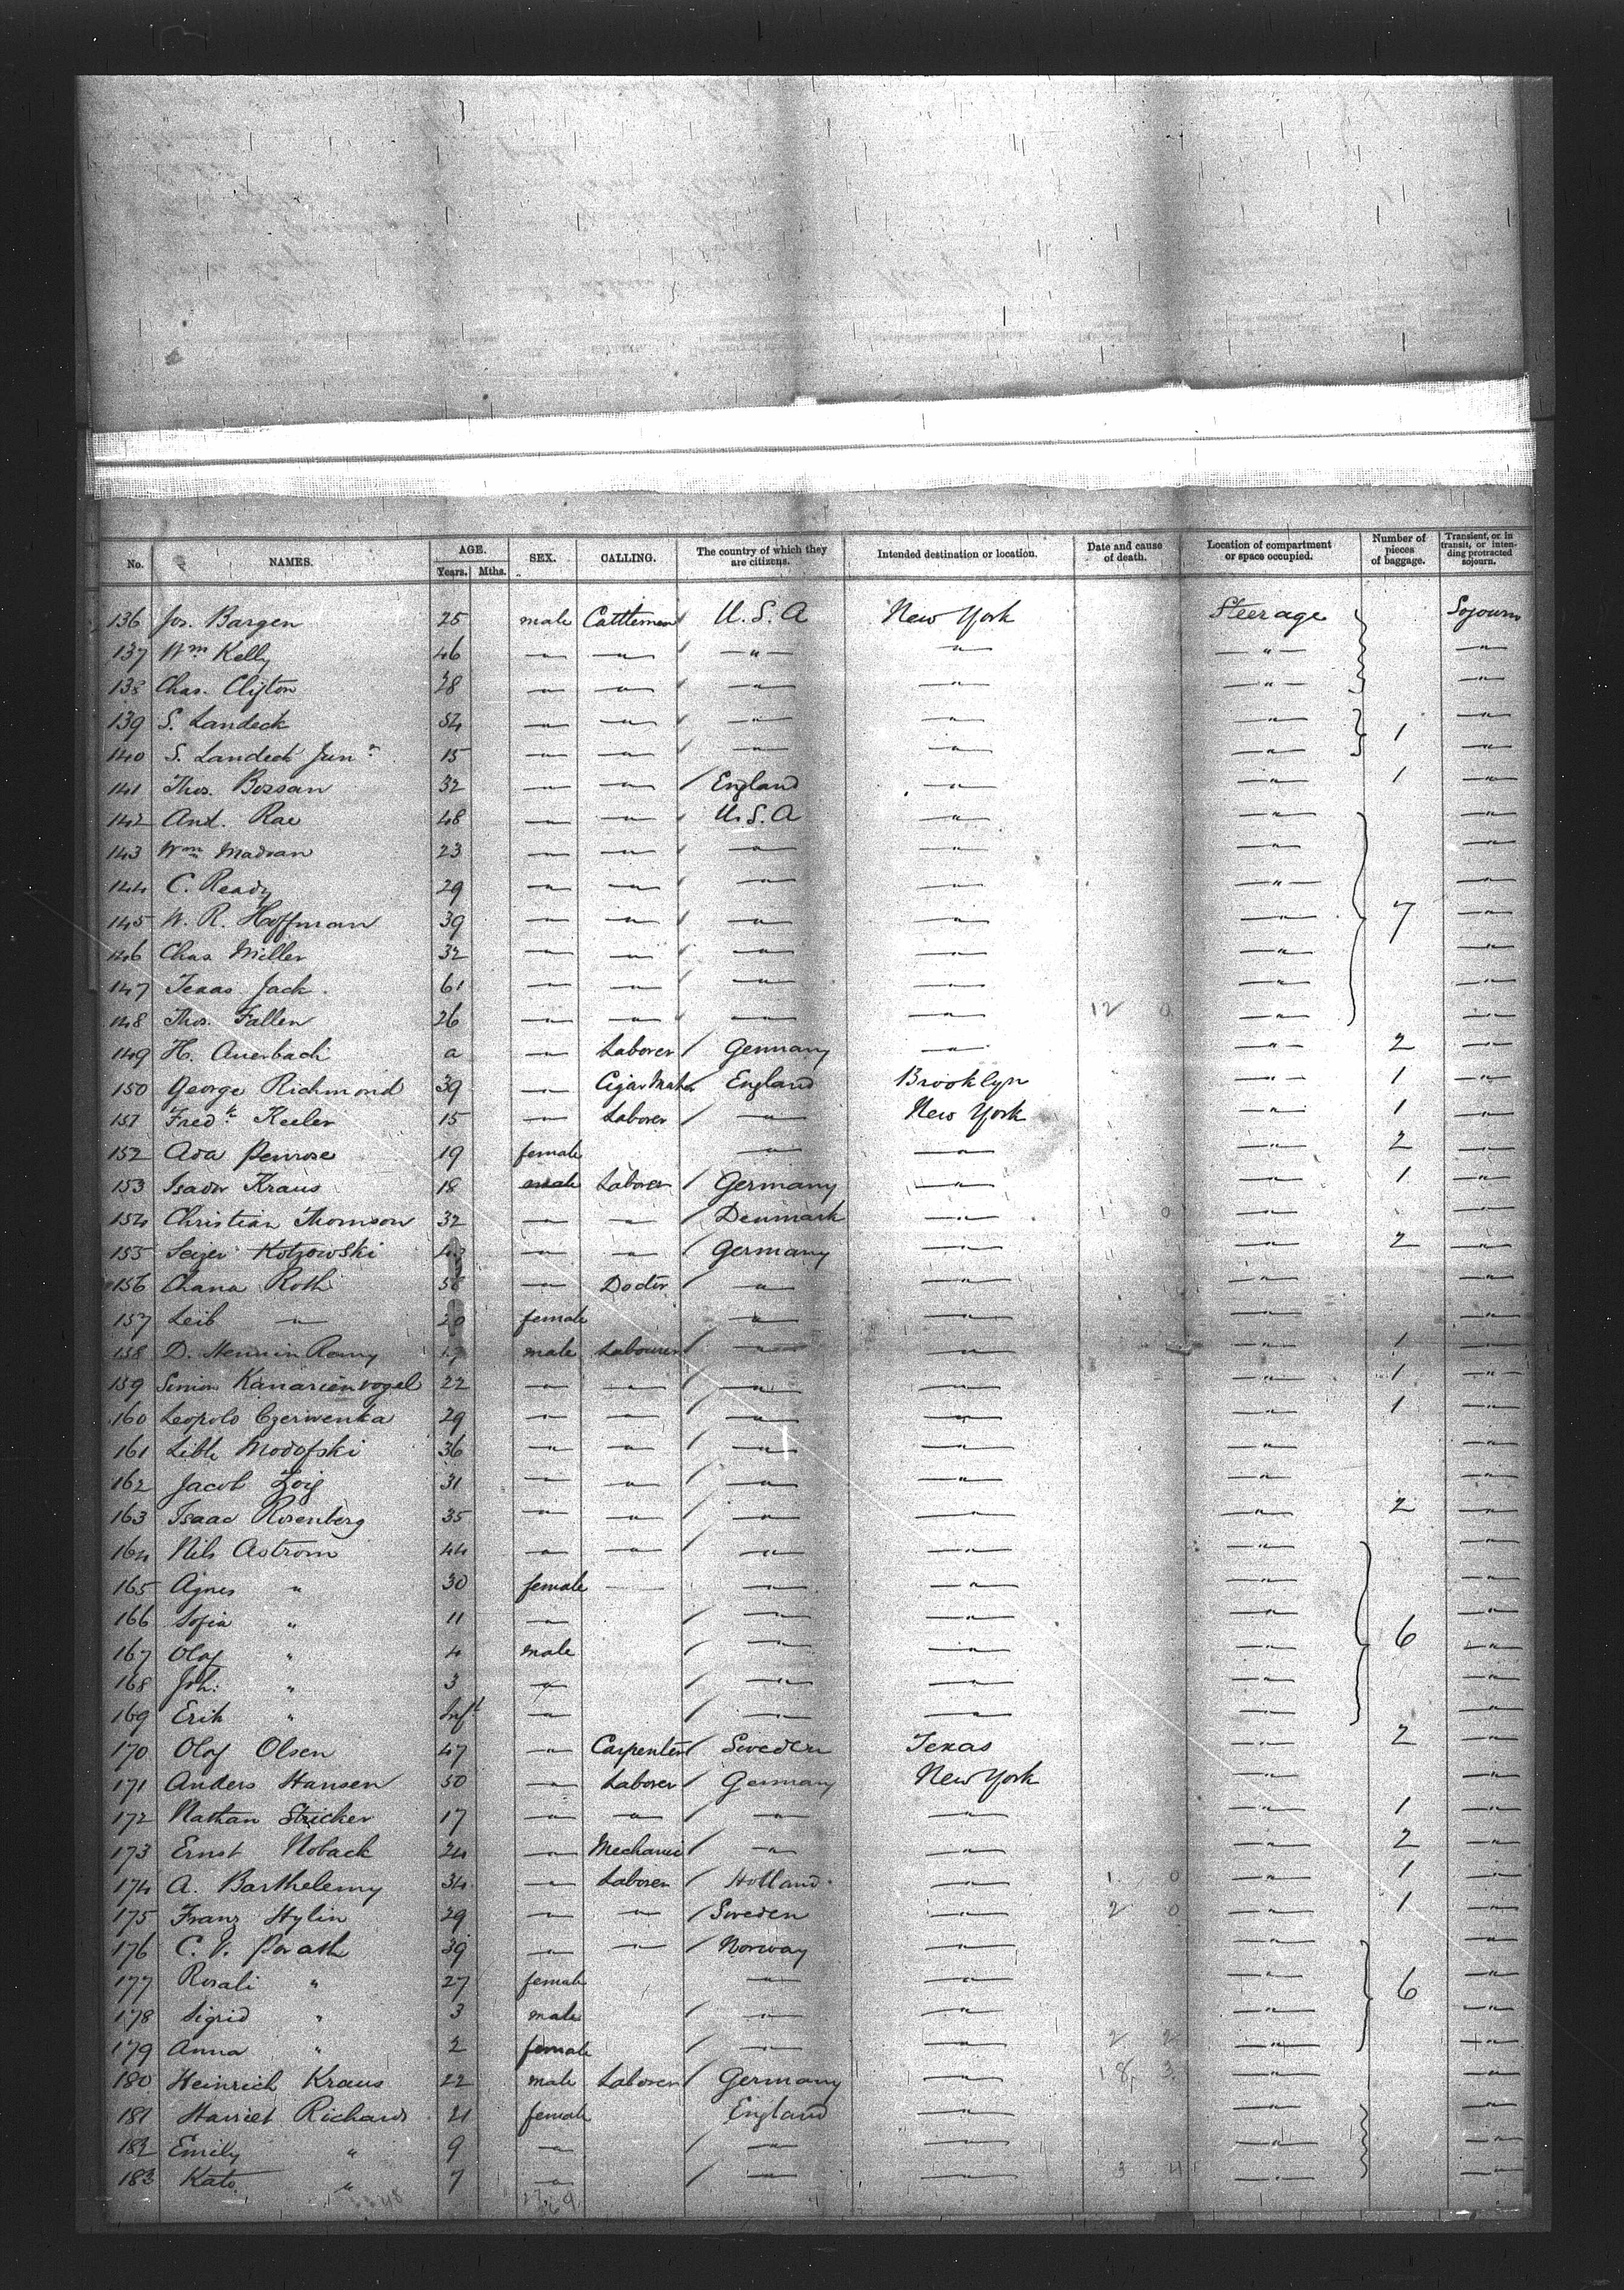 No. NAMES. AGE. Years. Mths. SEX. CALLING. The country of which they are citizens. Intended destination or location. Date and cause of death. Location of compartment or space occupied. Number of pieces of baggage. Transient, or in transit, or intending protracted sojourn.
136 Jos. Bargen 25 male Cattleman U.S.A New York Steerage Sojourn
137 Wm Kelly 46 " " " " " "
138 Chas. Clifton 28 " " " " " "
139 S. Landeck 54 " " " " " "
140 S. Landeck Junr 15 " " " " " 1 "
141 Thos. Bossan 32 " " England " " 1 "
142 And. Rae 48 " " U.S.A " " "
143 Wm Madran 23 " " " " " "
144 C. Ready 29 " " " " " "
145 W. R. Hoffman 39 " " " " " 7 "
146 Chas Miller 32 " " " " " "
147 Texas Jack 61 " " " " " "
148 Thos. Fallen 26 " " " " 12 0 " "
149 H. Auerbach a " Laborer Germany " " 2 "
150 George Richmond 39 " Cigar Maker England Brooklyn " 1 "
151 Fredk Keeler 15 " Laborer " New York " 1 "
152 Ada Penrose 19 female " " " 2 "
153 Isador Kraus 18 male Laborer Germany " " 1 "
154 Christian Thomson 32 " " Denmark " 1 0 " "
155 Kotzowski " " Germany " " 2 "
156 Chana Roth " Doctor " " " "
157 Leib " 20 female " " " "
158 D. male Labourer " " " 1 "
159 Simon Kanarienvogel 22 " " " " " 1 "
160 Leopold Czerwenka 29 " " " " " 1 "
161 36 " " " " " "
162 Jacob 31 " " " " " "
163 Isaac Rosenberg 35 " " " " " 2 "
164 Nils Astrom 44 " " " " " "
165 Agnes " 30 female " " " "
166 Sofia " 11 " " " " "
167 Olaf " 4 male " " " 6 "
168 Joh: " 3 " " " " "
169 Erik " Inft " " " " "
170 Olof Olsen 47 " Carpenter Sweden Texas " 2 "
171 Anders Hansen 50 " Laborer Germany New York " "
172 Nathan Stricker 17 " " " " " 1 "
173 Ernst Noback 24 " Mechanic " " " 2 "
174 A. Barthelemy 34 " Laborer Holland " 1 0 " 1 "
175 Franz Hylin 29 " " Sweden " 2 0 " 1 "
176 C. V. Porath 39 " " Norway " " "
177 Rosali " 27 female " " " 6 "
178 Sigrid " 3 male " " " "
179 Anna " 2 female " " 2 2 " "
180 Heinrich Kraus 22 male Laborer Germany " 18 3 " "
181 Harriet Richards 21 female England " " "
182 Emily " 9 " " " " "
183 Kate " 7 " " " 3 4 " "